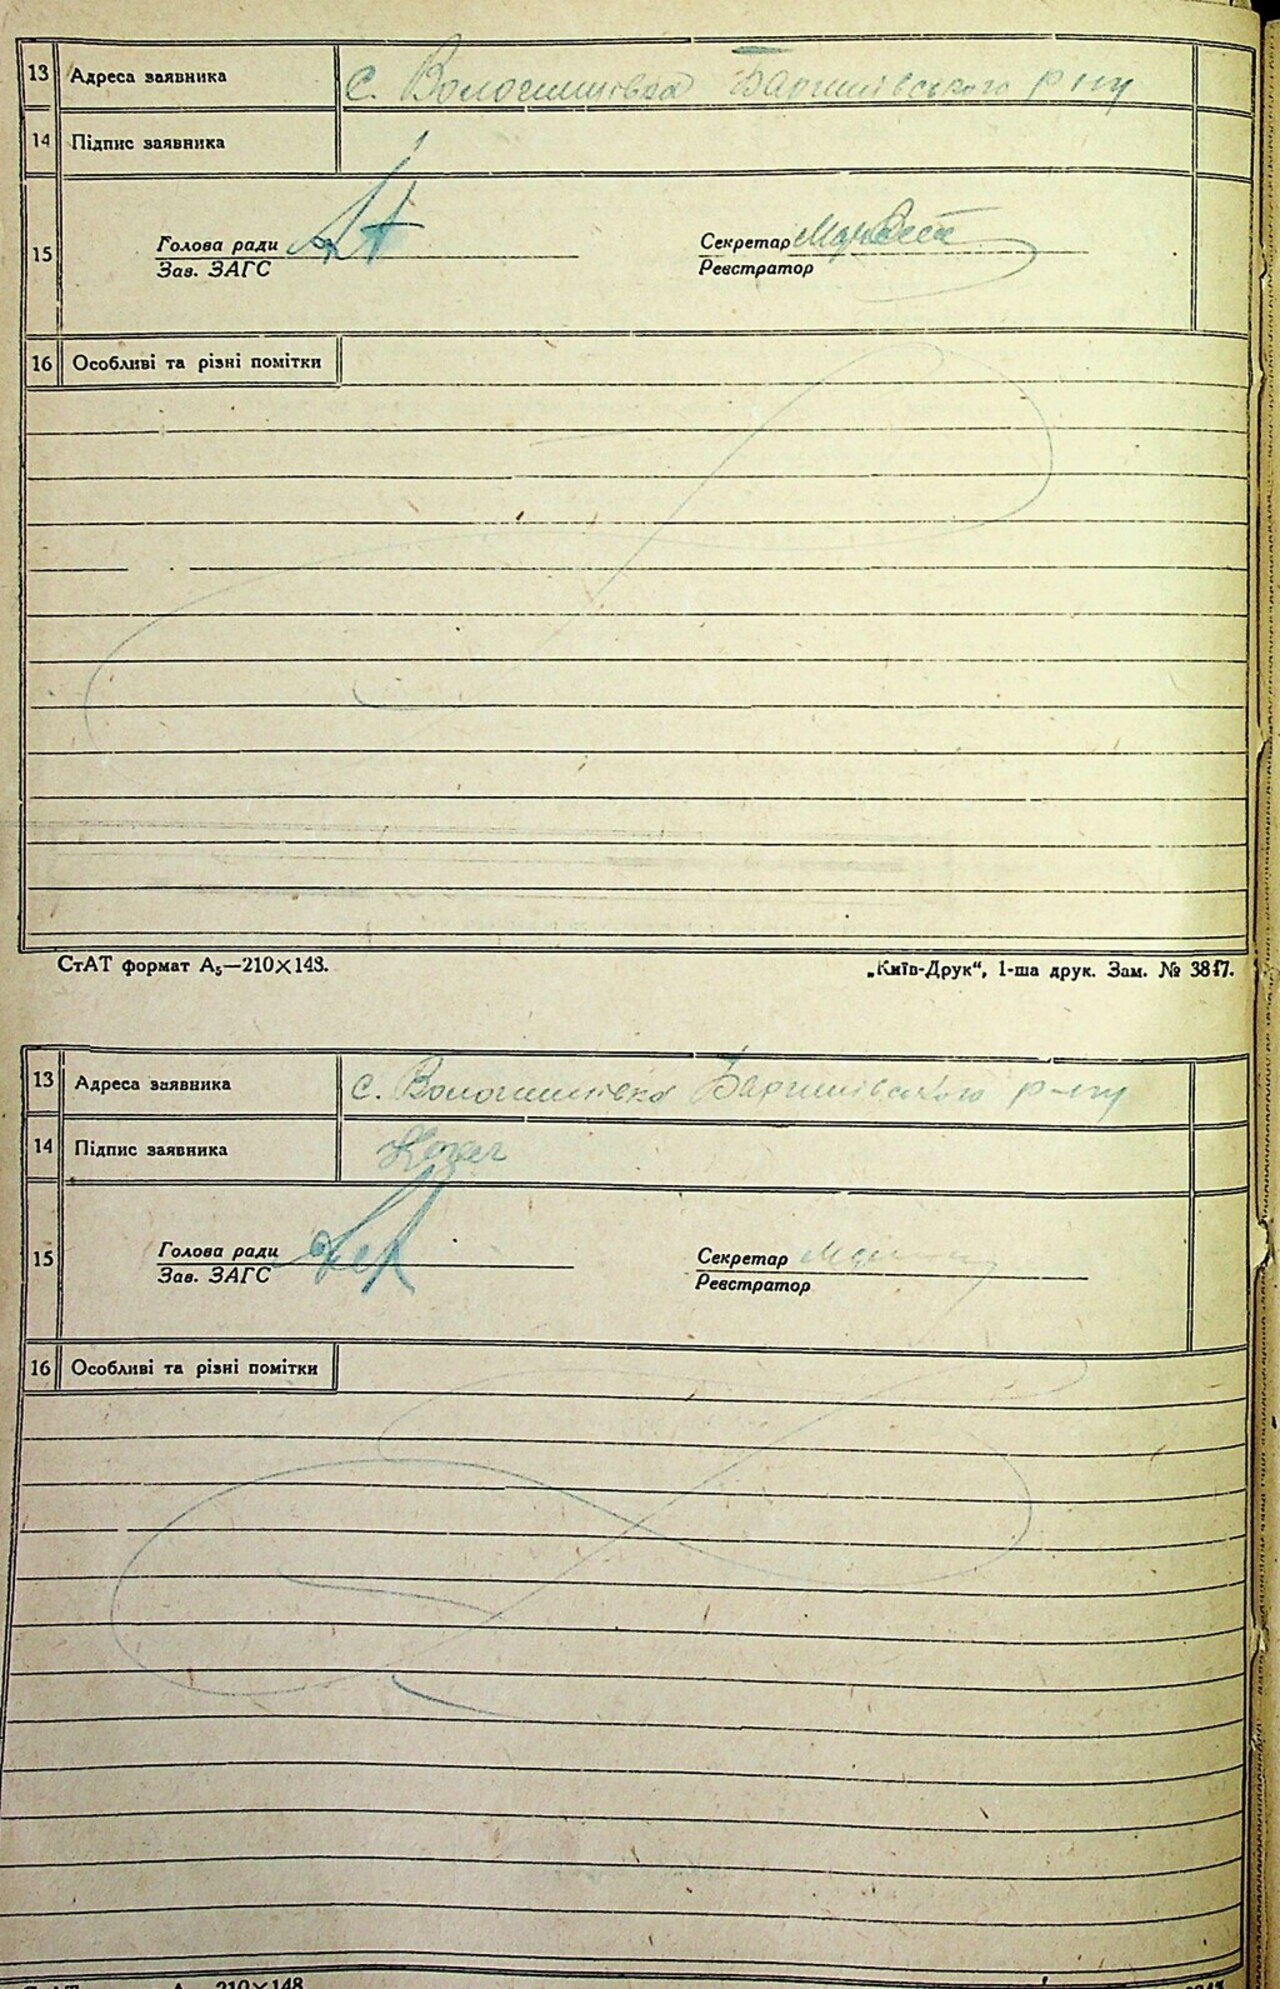 13 Адреса заявника с. Волошинівка Баришівського р-ну
14 Підпис заявника
15 Голова ради Секретар
Зав. ЗАГС Реєстратор
16 Особливі та різні помітки
СтАТ формат А₅—210×148. „Київ-Друк“, 1-ша друк. Зам. № 3817.
13 Адреса заявника с. Волошинівка Баришівського р-ну
14 Підпис заявника
15 Голова ради Секретар
Зав. ЗАГС Реєстратор
16 Особливі та різні помітки
210×148